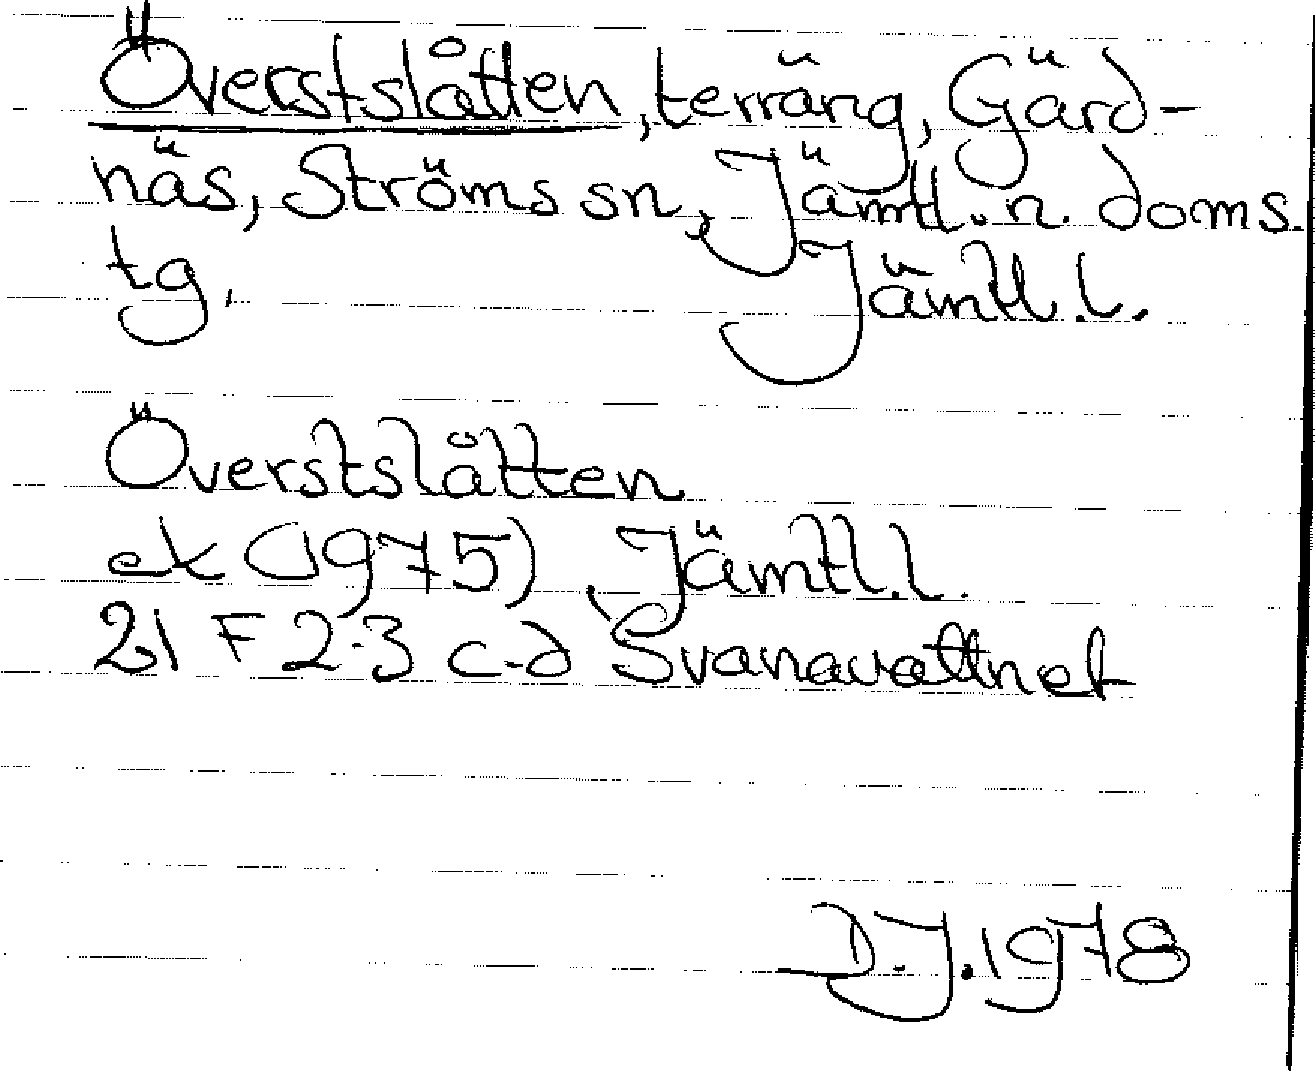 Överstslåtten, terräng, Gärd-
näs, Ströms sn, Jämtl. n. doms.
tg. Jämtl. l.
Överstslåtten
ek (1975) Jämtl. l.
21 F 2-3 c-d Svanavattnet
D.J. 1978